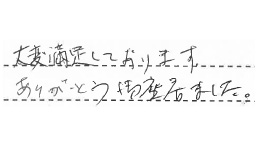 大変満足しております
ありがとう御座居ました。